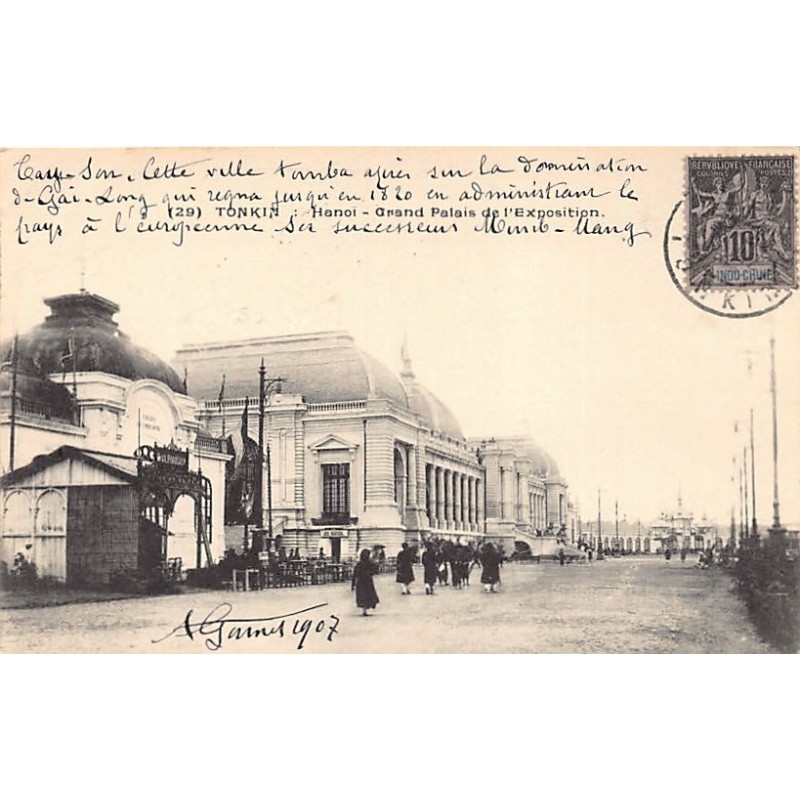 Tay-Son. Cette ville tomba après sur la domination
de Gai-Long qui régna jusqu'en 1820 en administrant le
(29) TONKIN : Hanoï - Grand Palais de l'Exposition.
pays à l'européenne Ses successeurs Minh-Mang
RÉPUBLIQUE FRANÇAISE
COLONIES POSTES
10
INDO-CHINE
TONKIN
A Garnet 1907